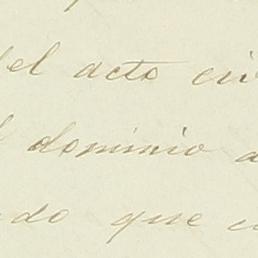 del acto civ
dominio a
ndo que